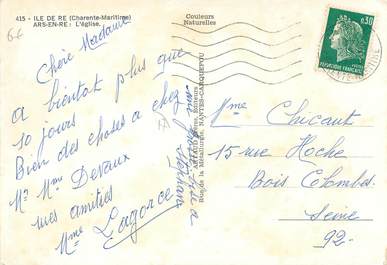 415 - ILE DE RE (Charente-Maritime)
ARS-EN-RE : L'église.
Couleurs
Naturelles
0,30
REPUBLIQUE FRANÇAISE
Chère Madame
a bientôt plus que
10 jours
Bien des choses a chez
Mr Mme Devaux
mes amitiés
Mme Lagorce
ARTAUD Frères, Editeurs
Rue de la Métallurgie, NANTES-CARQUEFOU
Mme Chicaut
15 rue Hoche
Bois Colombes
Seine
92-